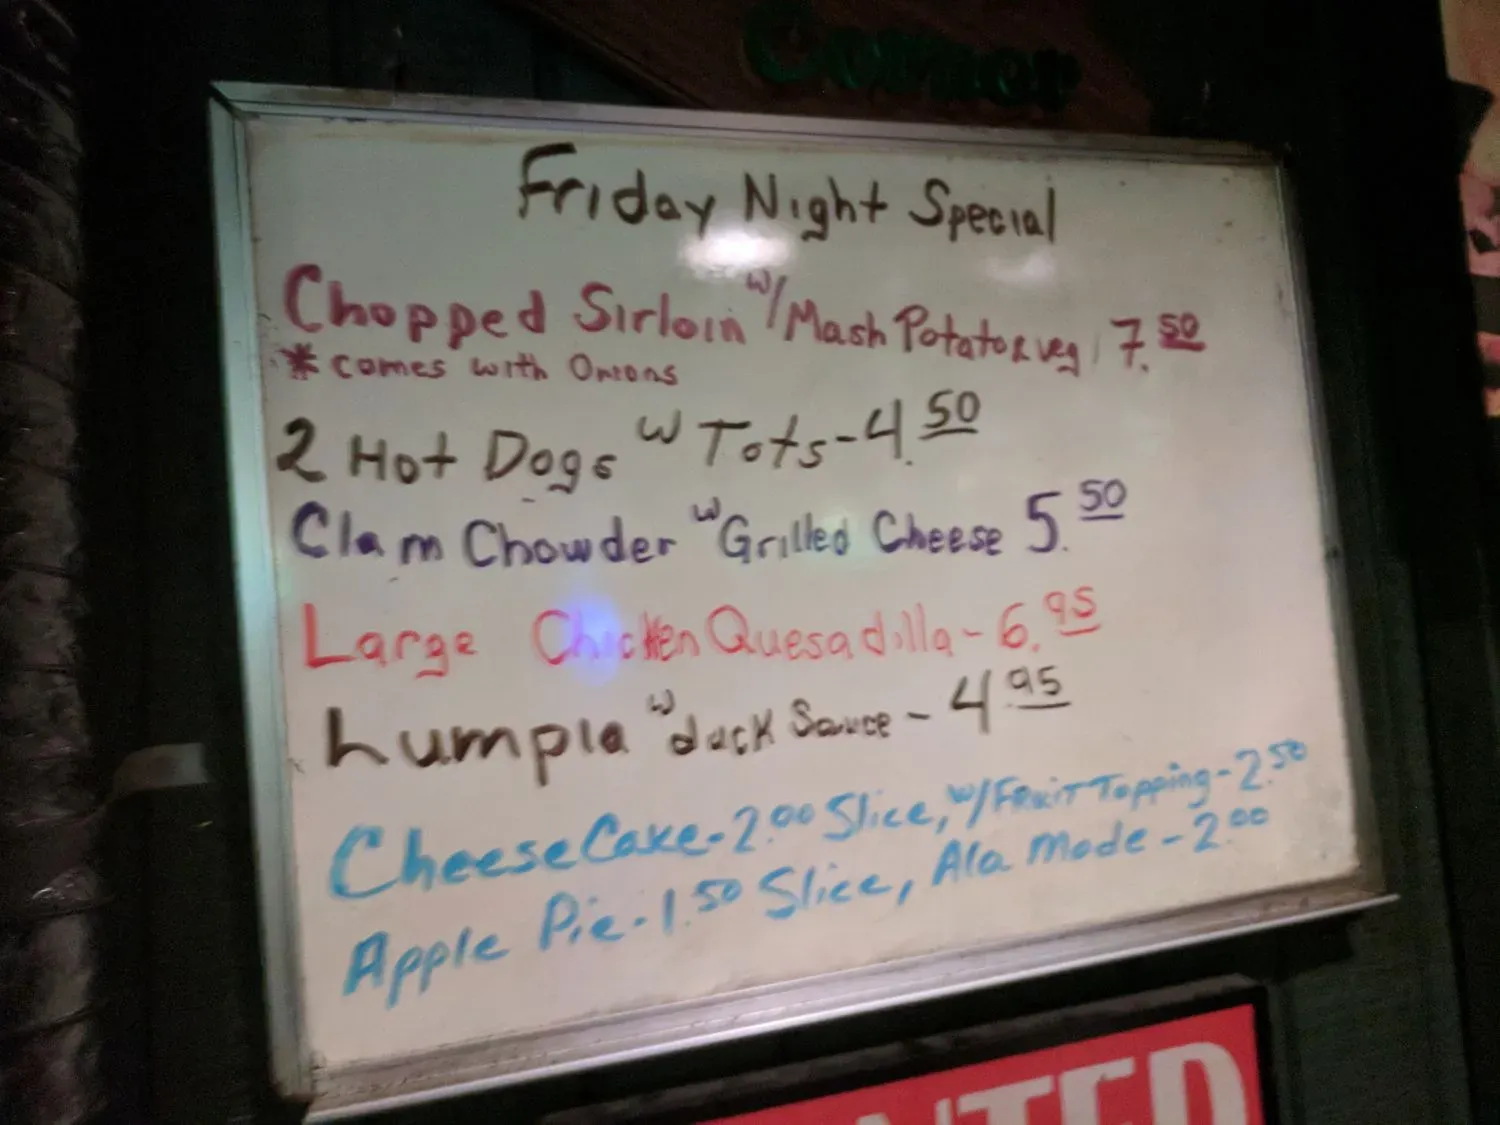 Corner
Friday Night Special
Chopped Sirloin w/ Mash Potato & veg 7.50
* comes with Onions
2 Hot Dogs w Tots - 4.50
Clam Chowder w Grilled Cheese 5.50
Large Chicken Quesadilla - 6.95
Lumpia w duck Sauce - 4.95
CheeseCake - 2.00 Slice, w/ Fruit Topping - 2.50
Apple Pie - 1.50 Slice, Ala Mode - 2.00